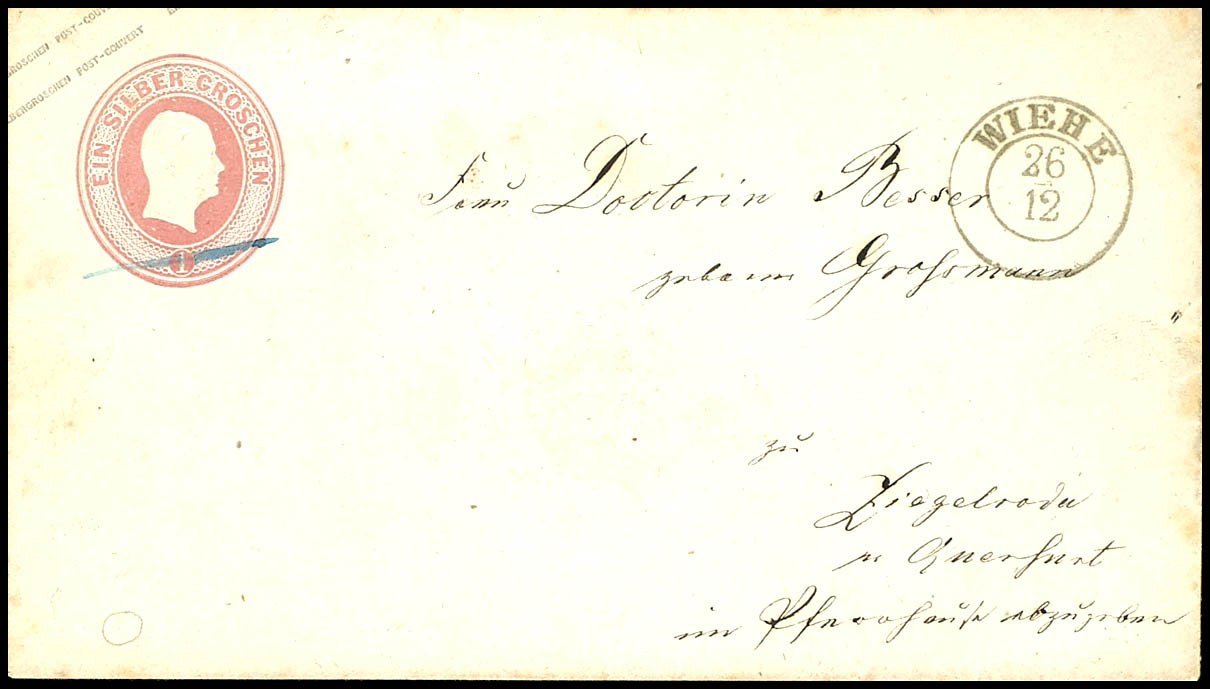 GROSCHEN POST-COUV
BERGROSCHEN POST-COUVERT
EIN SILBER GROSCHEN
1
WIEHE
26
12
Frau Doctorin Besser
geborne Grossmann
zu
Ziegelroda
pr Querfurt
im Pfarrhause abzugeben